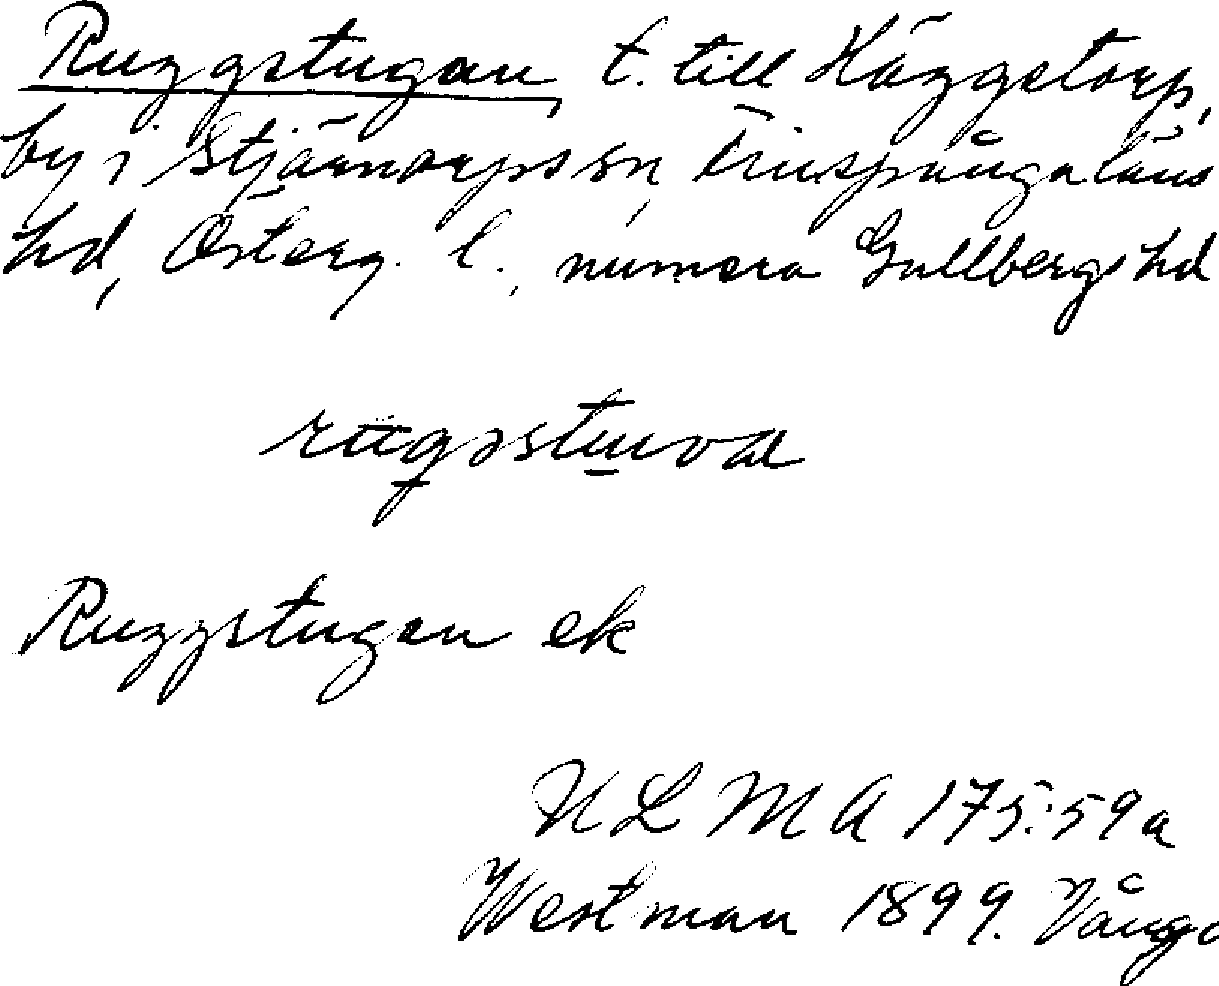 Ruggstugan, t. till Häggstorp,
by i Stjärnorps sn, Finspånga läns
hd, Österg. l., numera Gullbergs hd
Ruggstugan ek
ULMA 175:59a
Westman 1899. Vånga